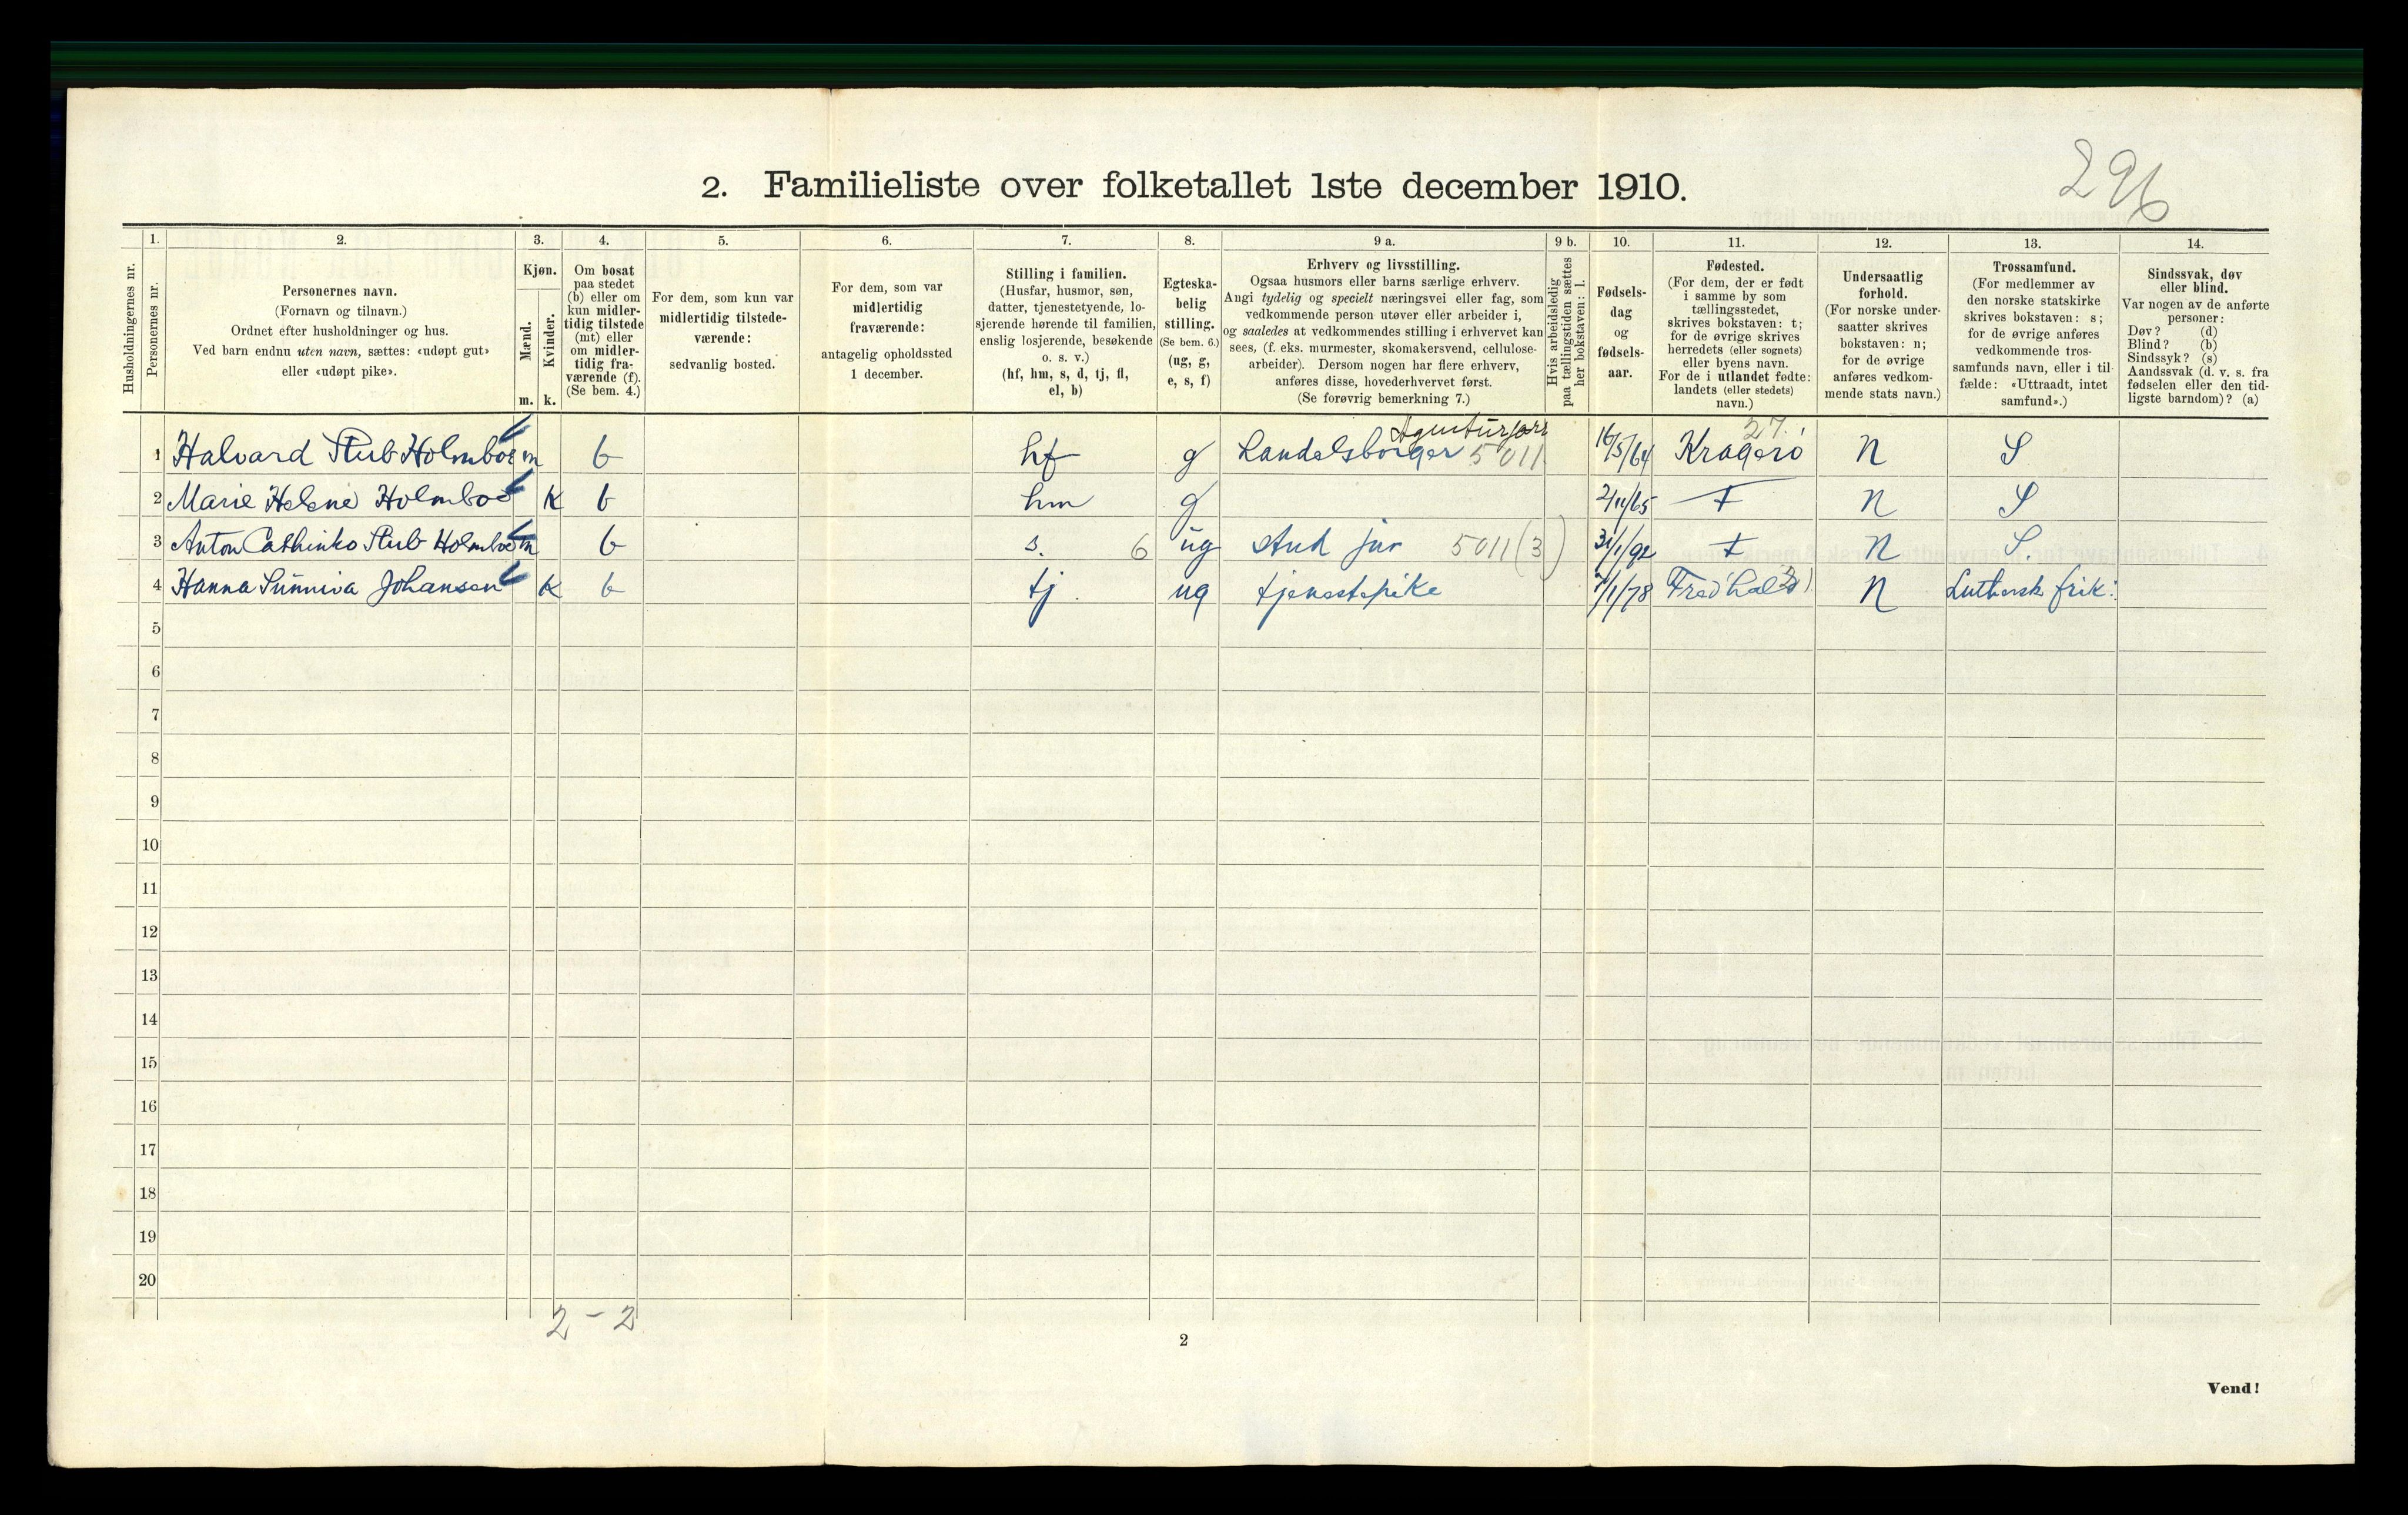 296
2. Familieliste over folketallet 1ste december 1910.
Husholdningernes nr.
1.
Personernes nr.
2.
Personernes navn.
(Fornavn og tilnavn.)
Ordnet efter husholdninger og hus.
Ved barn endnu uten navn, sættes: «udøpt gut»
eller «udøpt pike».
3.
Kjøn.
Mænd.
Kvinder.
m. k.
4.
Om bosat
paa stedet
(b) eller om
kun midler-
tidig tilstede
(mt) eller
om midler-
tidig fra-
værende (f).
(Se bem. 4.)
5.
For dem, som kun var
midlertidig tilstede-
værende:
sedvanlig bosted.
6.
For dem, som var
midlertidig
fraværende:
antagelig opholdssted
1 december.
7.
Stilling i familien.
(Husfar, husmor, søn,
datter, tjenestetyende, lo-
sjerende hørende til familien,
enslig losjerende, besøkende
o. s. v.)
(hf, hm, s, d, tj, fl,
el, b)
8.
Egteska-
belig
stilling.
(Se bem. 6.)
(ug, g,
e, s, f)
9 a.
Erhverv og livsstilling.
Ogsaa husmors eller barns særlige erhverv.
Angi tydelig og specielt næringsvei eller fag, som
vedkommende person utøver eller arbeider i,
og saaledes at vedkommendes stilling i erhvervet kan
sees, (f. eks. murmester, skomakersvend, cellulose-
arbeider). Dersom nogen har flere erhverv,
anføres disse, hovederhvervet først.
(Se forøvrig bemerkning 7.)
9 b.
Hvis arbeidsledig
paa tællingstiden sættes
her bokstaven: l.
10.
Fødsels-
dag
og
fødsels-
aar.
11.
Fødested.
(For dem, der er født
i samme by som
tællingsstedet,
skrives bokstaven: t;
for de øvrige skrives
herredets (eller sognets)
eller byens navn.
For de i utlandet fødte:
landets (eller stedets)
navn.)
12.
Undersaatlig
forhold.
(For norske under-
saatter skrives
bokstaven: n;
for de øvrige
anføres vedkom-
mende stats navn.)
13.
Trossamfund.
(For medlemmer av
den norske statskirke
skrives bokstaven: s;
for de øvrige anføres
vedkommende tros-
samfunds navn, eller i til-
fælde: «Uttraadt, intet
samfund».)
14.
Sindssvak, døv
eller blind.
Var nogen av de anførte
personer:
Døv? (d)
Blind? (b)
Sindssyk? (s)
Aandssvak (d. v. s. fra
fødselen eller den tid-
ligste barndom)? (a)
27.
1 Halvard Stub Holmboe m b hf g Handelsborger 5011 16/5/64 Kragerø N S
2 Marie Helene Holmboe k b hm g 2/11/65 t N S
3 Anton Cathinko Stub Holmboe m b s. 6 ug Stud jur 5011 (3) 31/1/92 t N S.
4 Hanna Sunniva Johansen k b tj. ug tjenestepike 7/1/78 Fred'hald N Luthersk frik:
5
6
7
8
9
10
11
12
13
14
15
16
17
18
19
20
2 - 2
2
Vend!